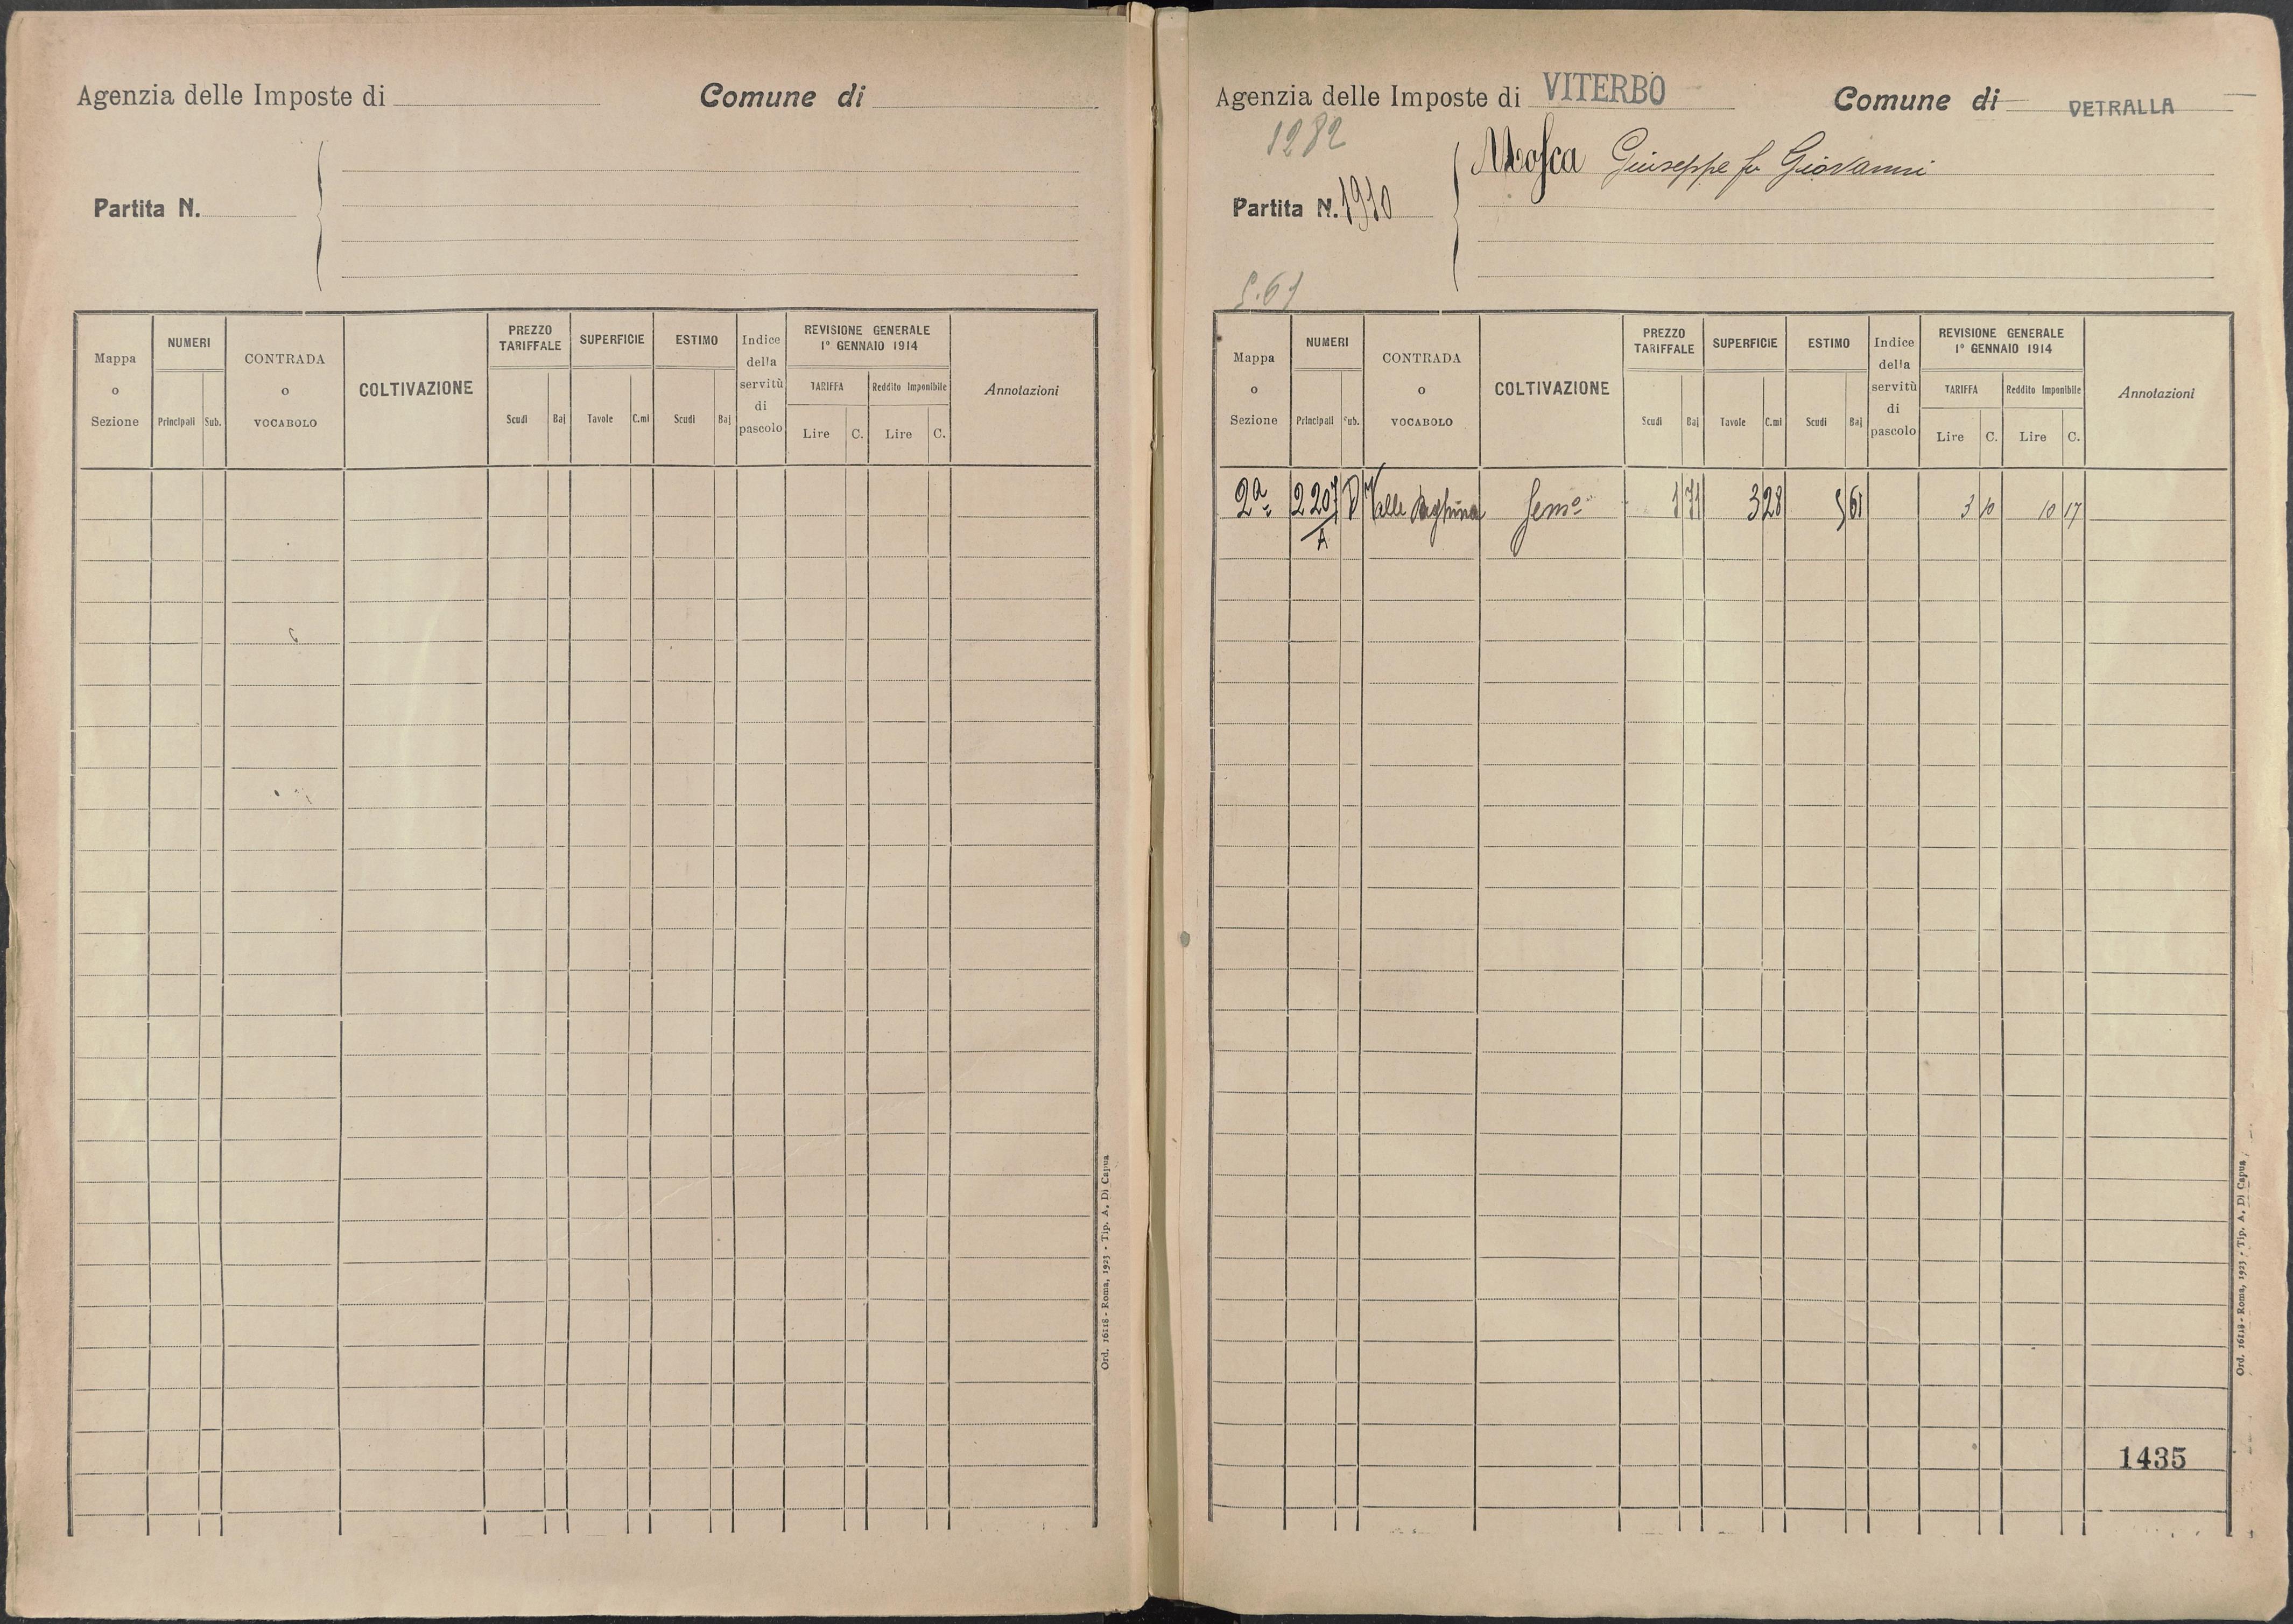 Agenzia delle Imposte di
Comune di
Partita N.
Mappa o Sezione
NUMERI
Principali Sub.
CONTRADA o VOCABOLO
COLTIVAZIONE
PREZZO TARIFFALE
Scudi Baj
SUPERFICIE
Tavole C.mi
ESTIMO
Scudi Baj
Indice della servitù di pascolo
REVISIONE GENERALE
1° GENNAIO 1914
TARIFFA Reddito Imponibile
Lire C. Lire C.
Annotazioni
Ord. 16118 - Roma, 1923 - Tip. A. Di Capua
Agenzia delle Imposte di VITERBO
Comune di VETRALLA
1282
Mosca Giuseppe fu Giovanni
Partita N. 1910
5.61
Mappa o Sezione
NUMERI
Principali Sub.
CONTRADA o VOCABOLO
COLTIVAZIONE
PREZZO TARIFFALE
Scudi Baj
SUPERFICIE
Tavole C.mi
ESTIMO
Scudi Baj
Indice della servitù di pascolo
REVISIONE GENERALE
1° GENNAIO 1914
TARIFFA Reddito Imponibile
Lire C. Lire C.
Annotazioni
2a 2207/A Valle Semo 1 71 3 28 5 61 3 10 10 17
1435
Ord. 16118 - Roma, 1923 - Tip. A. Di Capua